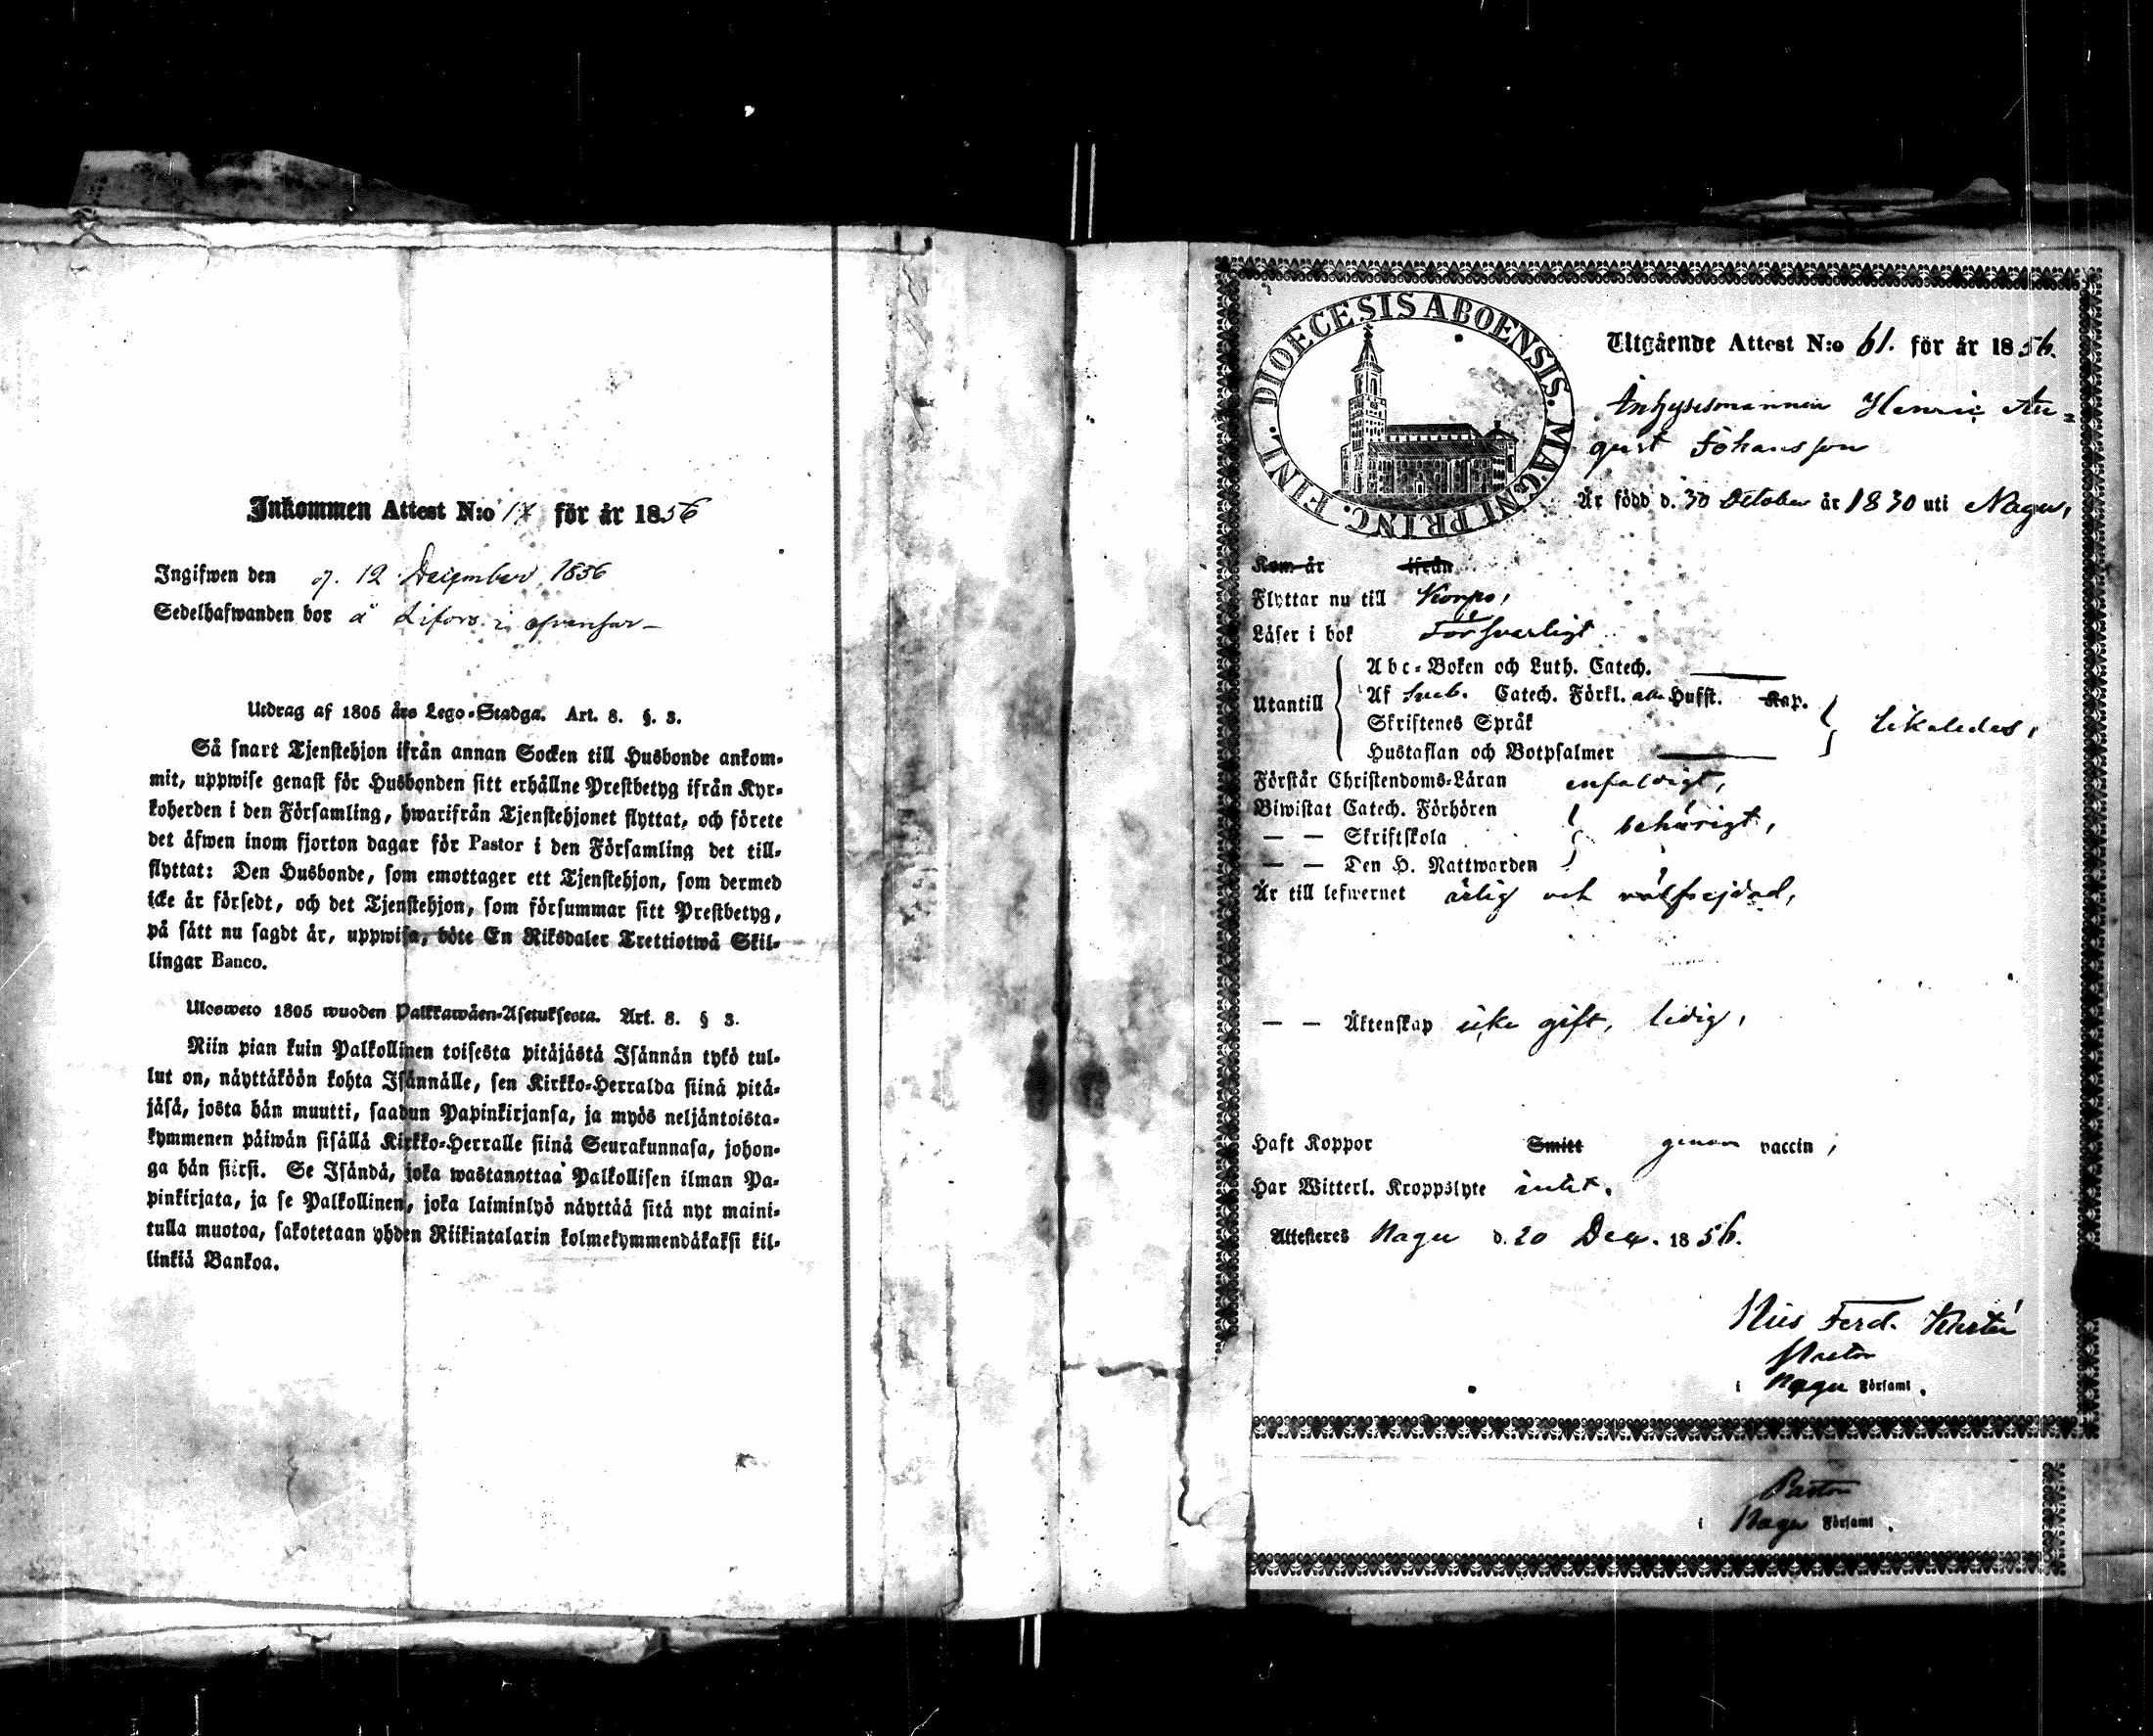 Inkommen Attest N:o för år 1856
Ingifwen den 12 December 1856
Sedelhafwanden bor å Lifors i
Utdrag af 1805 års Lego-Stadga. Art. 8. §. 3.
Så snart Tjenstehjon ifrån annan Socken till Husbonde ankom-
mit, uppwise genast för Husbonden sitt erhållne Prestbetyg ifrån Kyr-
koherden i den Församling, hwarifrån Tjenstehjonet flyttat, och förete
det äfwen inom fjorton dagar för Pastor i den Församling det till-
flyttat: Den Husbonde, som emottager ett Tjenstehjon, som dermed
icke är försedt, och det Tjenstehjon, som försummar sitt Prestbetyg,
på sätt nu sagdt är, uppwisa, böte En Riksdaler Trettiotwå Skil-
lingar Banco.
Ulosweto 1805 wuoden Palkkawäen-Asetuksesta. Art. 8. § 3.
Niin pian kuin Palkollinen toisesta pitäjästä Isännän tykö tul-
lut on, näyttäköön kohta Isännälle, sen Kirkko-Herralda siinä pitä-
jäsä, josta hän muutti, saadun Papinkirjansa, ja myös neljäntoista-
kymmenen päiwän sisällä Kirkko-Herralle siinä Seurakunnasa, johon-
ga hän siirsi. Se Isändä, joka wastanottaa Palkollisen ilman Pa-
pinkirjata, ja se Palkollinen, joka laiminlyö näyttää sitä nyt maini-
tulla muotoa, sakotetaan yhden Riikintalarin kolmekymmendäkaksi kil-
linkiä Bankoa.
DIOECESIS ABOENSIS. MAGNI PRINC. FINL.
Utgående Attest N:o 61. för år 1856.
Inhysesmannen Henric Au-
gust Johansson
Är född d. 30 October år 1830 uti Nagu,
Kom år ifrån
Flyttar nu till Korpo,
Läser i bok Försvarligt
Utantill
Abc-Boken och Luth. Catech.
Af Sveb. Catech. Förkl. Hufst. Kap.
Skriftenes Språk
Hustaflan och Botpsalmer
likaledes,
Förstår Christendoms-Läran enfaldigt,
Biwistat Catech. Förhören
— — Skriftskola
— — Den H. Nattwarden
behörigt,
Är till lefwernet ärlig och välfrejdad,
— — Äktenskap icke gift, ledig,
Haft Koppor Smitt genom vaccin,
Har Witterl. Kroppslyte intet.
Attesteres Nagu d. 20 Dec. 1856.
Nils Ferd.
Pastor
i Nagu Församl.
Pastor
i Nagu Församl.